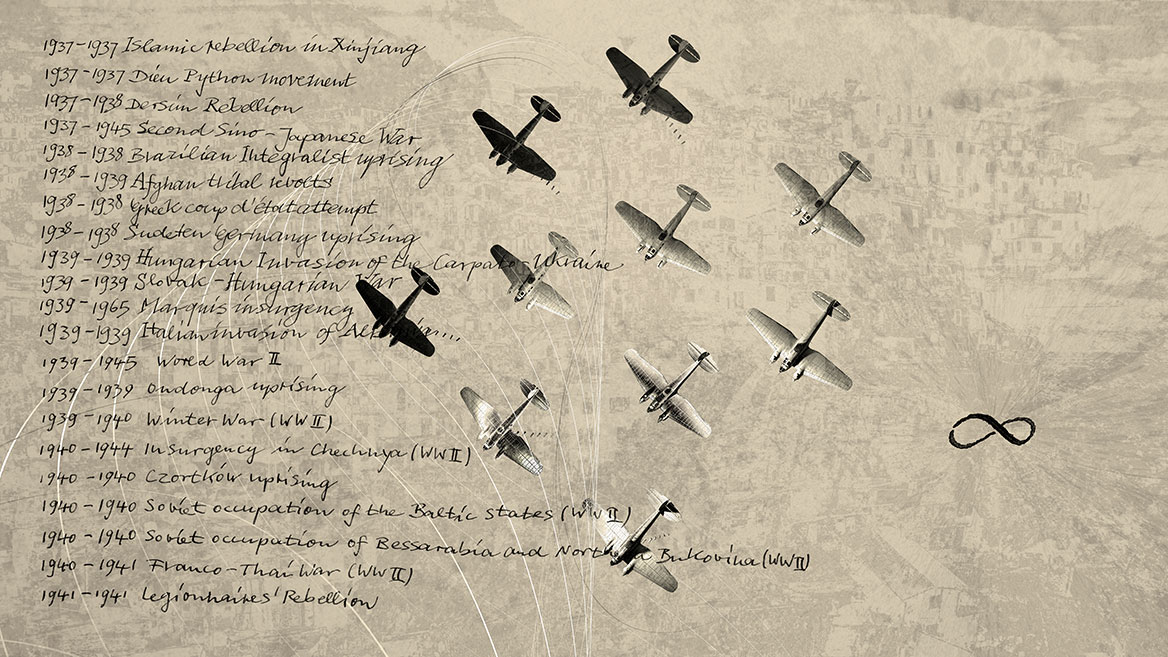 1937-1937 Islamic rebellion in Xinjiang
1937-1937 Dieu Python movement
1937-1938 Dersim Rebellion
1937-1945 Second Sino-Japanese War
1938-1938 Brazilian Integralist uprising
1938-1939 Afghan tribal revolts
1938-1938 Greek coup d'état attempt
1938-1938 Sudeten Germany uprising
1939-1939 Hungarian Invasion of the Carpato-Ukraine
1939-1939 Slovak-Hungarian War
1939-1965 Marquis insurgency
1939-1939 Italian invasion of
1939-1945 World War II
1939-1939 Ondonga uprising
1939-1940 Winter War (WW II)
1940-1944 Insurgency in Chechnya (WW II)
1940-1940 Czortków uprising
1940-1940 Soviet occupation of the Baltic States (WW II)
1940-1940 Soviet occupation of Bessarabia and Northern Bukovina (WW II)
1940-1941 Franco-Thai War (WW II)
1941-1941 Legionnaires' Rebellion